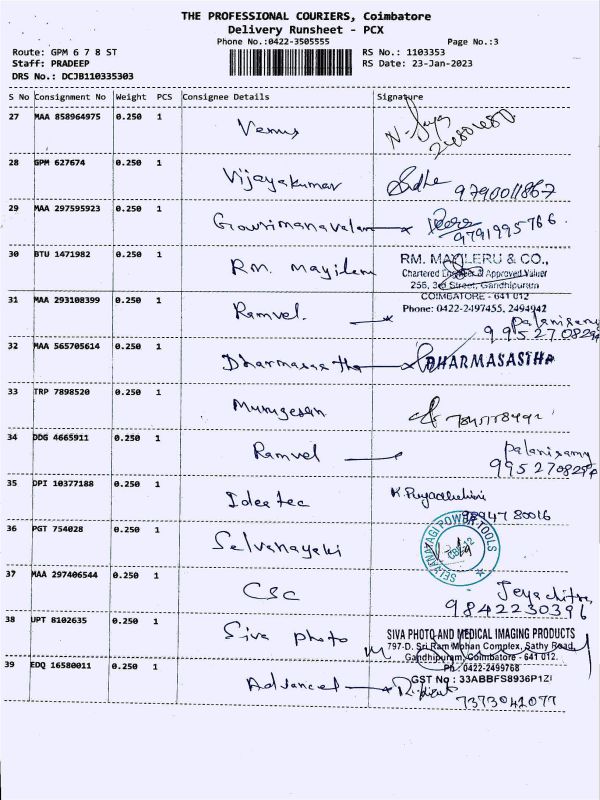 THE PROFESSIONAL COURIERS, Coimbatore
Delivery Runsheet - PCX
Phone No.:0422-3505555
Page No.:3
Route: GPM 6 7 8 ST
RS No.: 1103353
Staff: PRADEEP
RS Date: 23-Jan-2023
DRS No.: DCJB110335303
S No Consignment No Weight PCS Consignee Details Signature
27 MAA 858964975 0.250 1 Venus
28 GPM 627674 0.250 1 Vijayakumar 9790011867
29 MAA 297595923 0.250 1 Gowrimanavalan 9791995766
30 BTU 1471982 0.250 1 RM. mayileru
RM. MAYILERU & CO.,
Chartered Engineer & Approved Valuer
256, 3rd Street, Gandhipuram
COIMBATORE - 641 012
Phone: 0422-2497455, 2494942
31 MAA 293108399 0.250 1 Ramvel. Palanisamy
32 MAA 565705614 0.250 1 Dharmasastha DHARMASASTHA
33 TRP 7898520 0.250 1 Murugesan
34 DDG 4665911 0.250 1 Ramvel Palanisamy
35 DPI 10377188 0.250 1 Idea tec
36 PGT 754028 0.250 1 Selvanayaki
SELVANAYAGI POWER TOOLS
CBE-12
37 MAA 297406544 0.250 1 CSC Jeyachitra
9842230396
38 UPT 8102635 0.250 1 Siva photo
SIVA PHOTO AND MEDICAL IMAGING PRODUCTS
797-D, Sri Ram Mohan Complex, Sathy Road,
Gandhipuram, Coimbatore - 641 012.
Ph : 0422-2499768
GST No : 33ABBFS8936P1ZI
39 EDQ 16580011 0.250 1 Advanced
7373041077